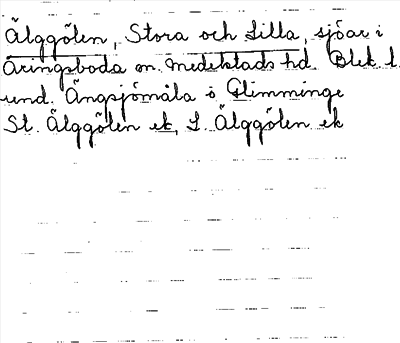 Älggölen, Stora och Lilla, sjöar i
Äringsboda sn. Medelstads hd. Blek. l.
und. Ängsjömåla o Glimminge
St. Älggölen ek, L. Älggölen ek